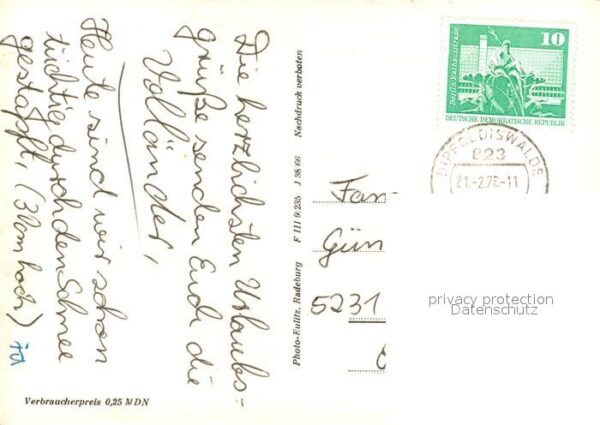 Die herzlichsten Urlaubs-
grüße senden Euch die
Volländer,
Heute sind wir schon
tüchtig durch den Schnee
gestapft, (30cm hoch)
Verbraucherpreis 0,25 MDN
Photo-Eulitz, Radeburg F III 9 235 J 38 66 Nachdruck verboten
Berlin, Rathausstraße
10
DEUTSCHE DEMOKRATISCHE REPUBLIK
DIPPOLDISWALDE
823
21.-2.76-11
Fam
Gün
5231
privacy protection
Datenschutz